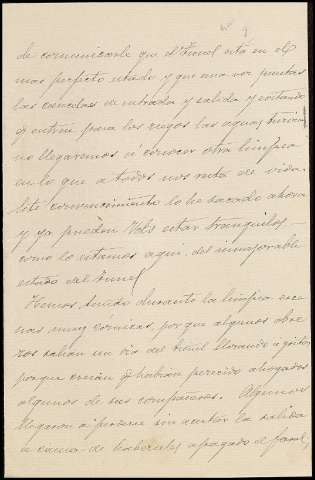 de comunicarle que el Tunel está en el
mas perfecto estado y que una vez puestas
las cancelas de entrada y salida y evitando
q entren para los riegos las aguas turbias
no llegaremos a conocer otra limpia
en lo que a todos nos resta de vida.
Este convencimiento lo he sacado ahora
y ya pueden Vds estar tranquilos
como lo estamos aqui, del inmejorable
estado del Tunel
Hemos tenido durante la limpia esce
nas muy cómicas, por que algunos obre
ros salian un dia del tunel llorando a gritos
porque creian q habian perecido ahogados
algunos de sus compañeros. Algunos
llegaron a perderse sin acertar la salida
a causa de haberseles apagado el farol,